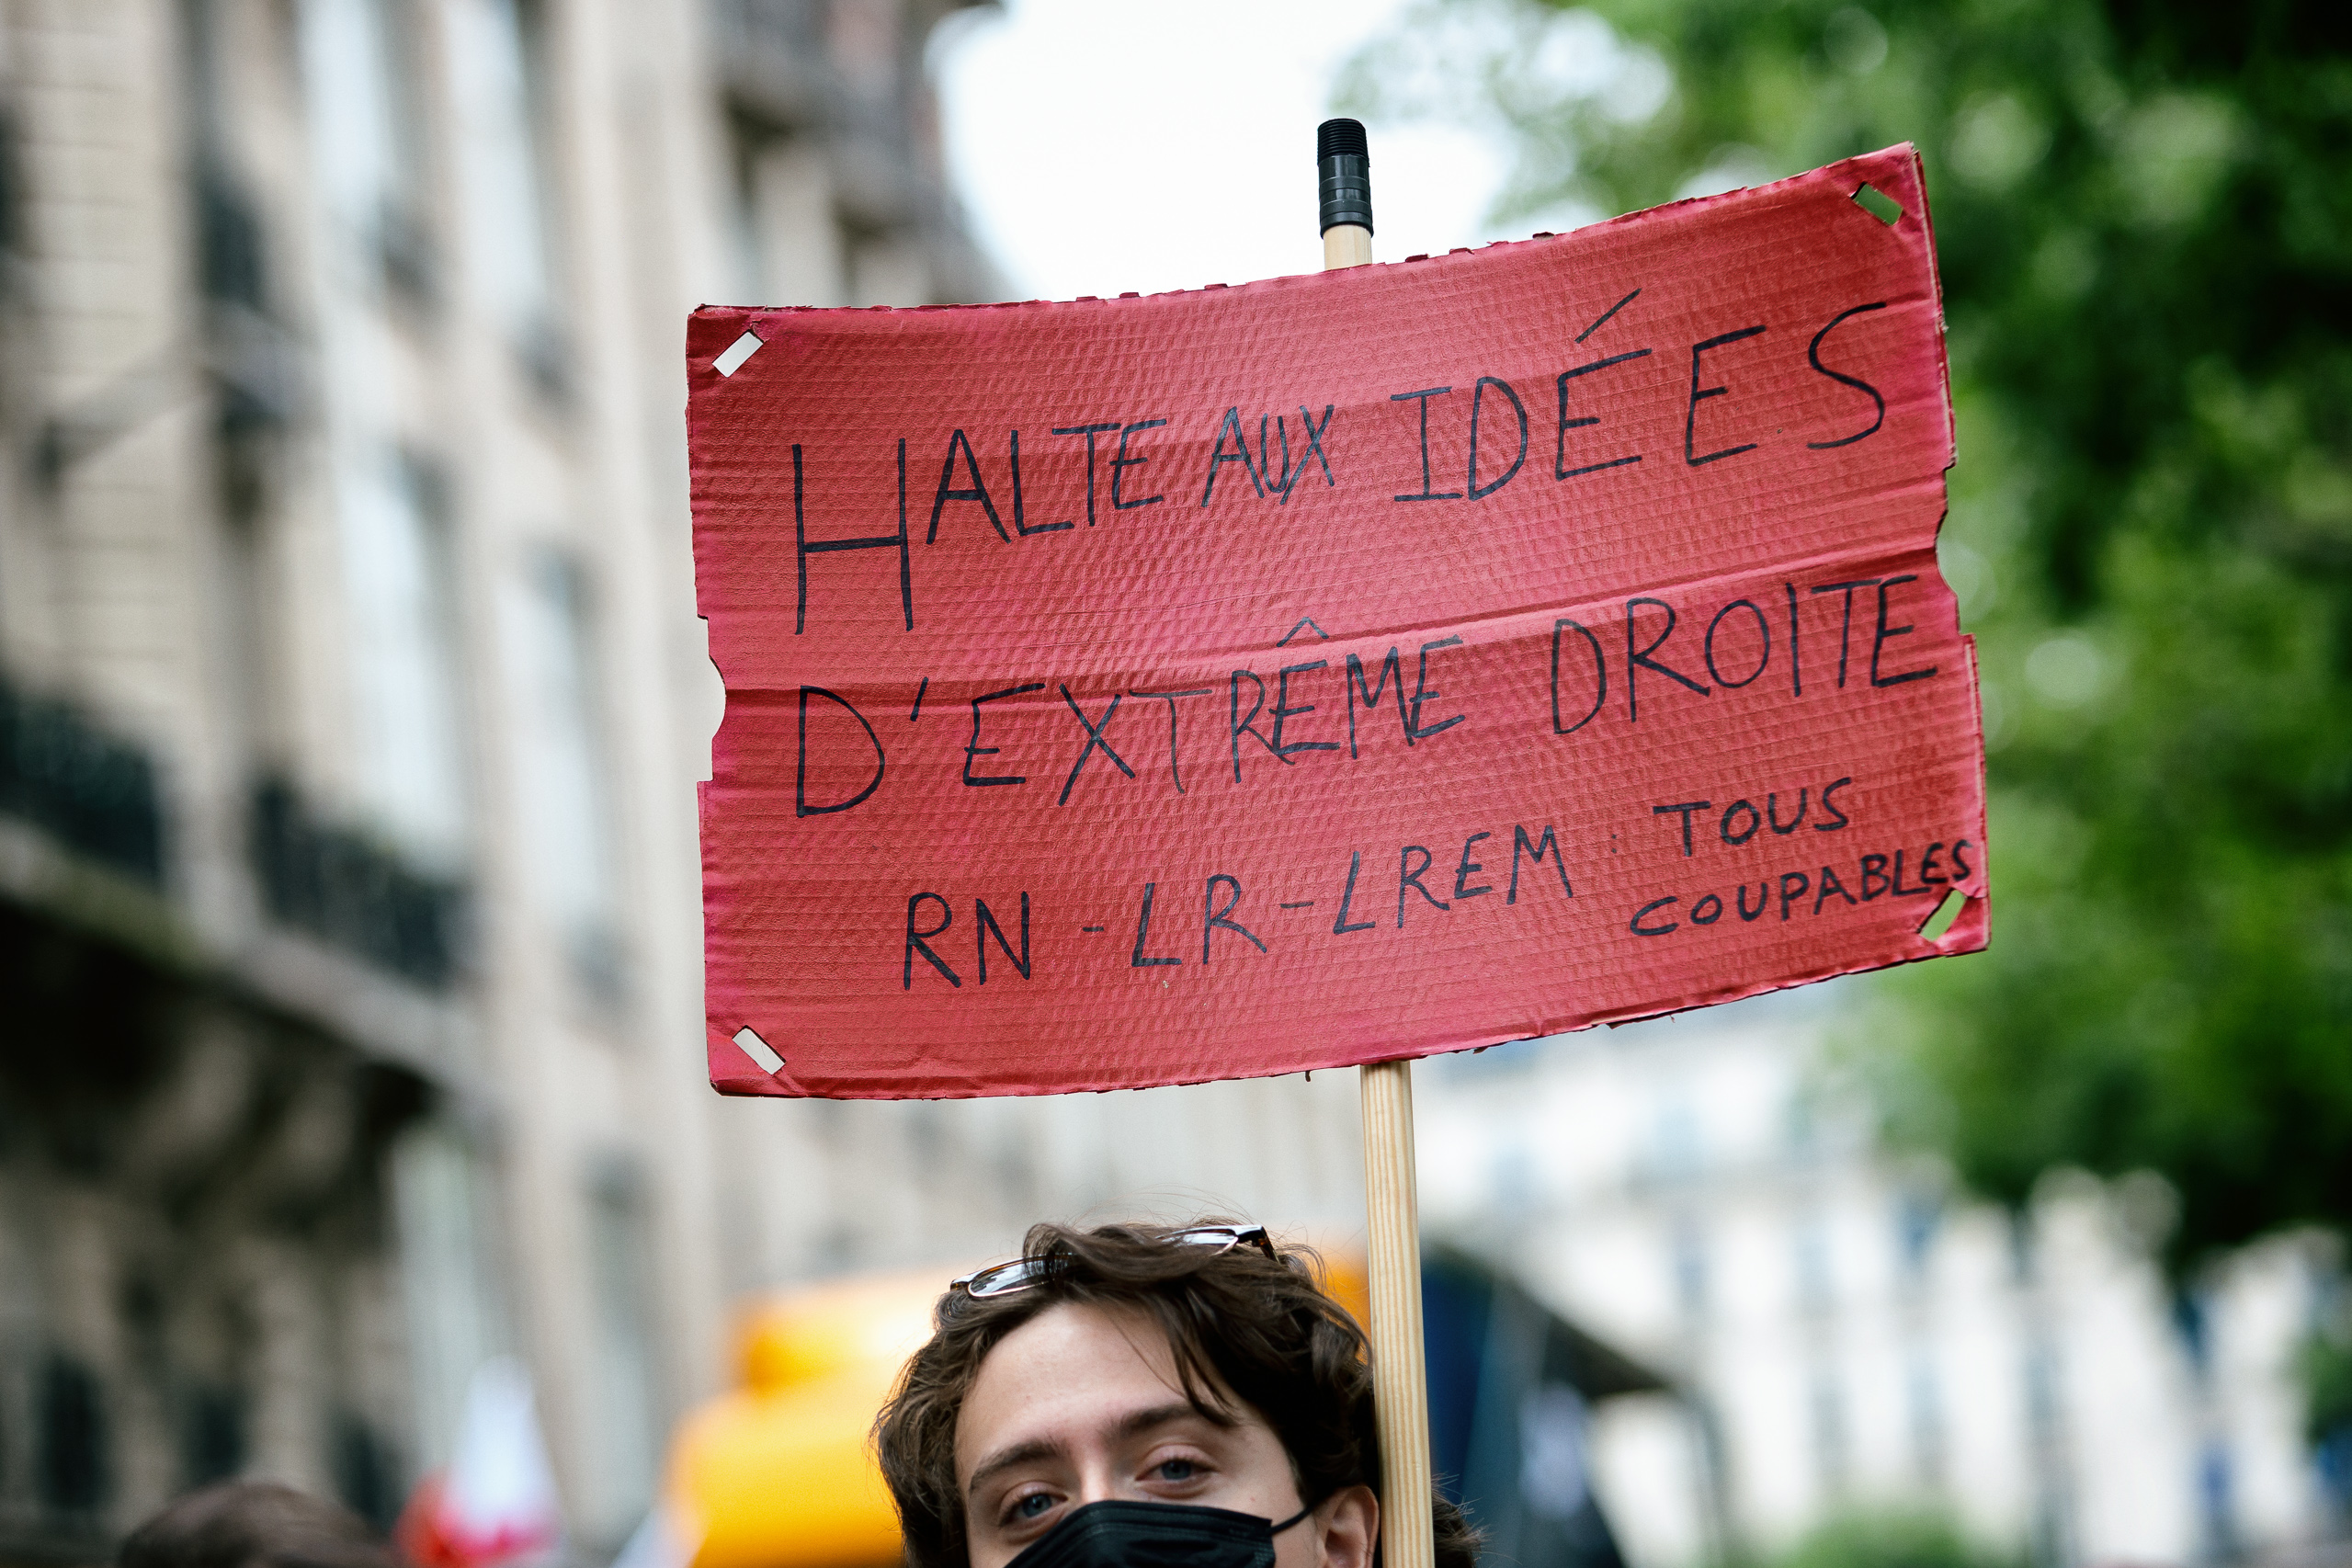 HALTE AUX IDÉES
D'EXTRÊME DROITE
RN - LR - LREM : TOUS
COUPABLES